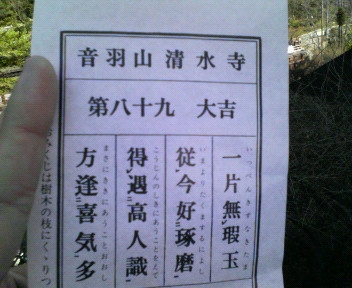 音羽山清水寺
第八十九 大吉
いっぺんきずなきたま
一片無瑕玉
いまよりたくまするによし
従今好琢磨
こうじんのしきにあうことをえて
得遇高人識
まさにききにあうことおおし
方逢喜気多
おみくじは樹木の枝にくゝりつ